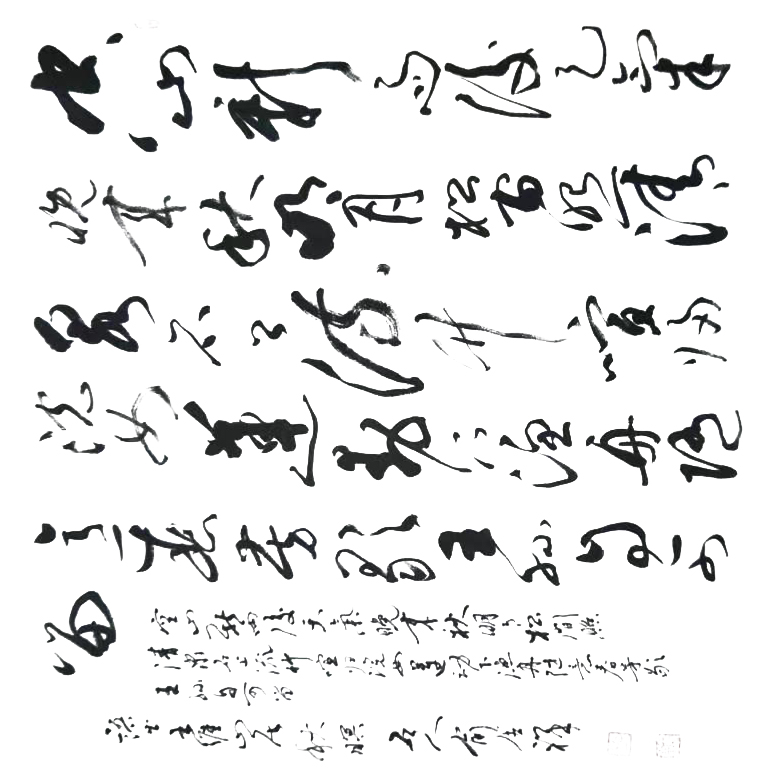 空山新雨後天氣
晚来秋明月松間照清
泉石上流竹喧歸
浣女蓮動下漁舟隨
意春芳歇王孫自可
留
空山新雨後天氣晚来秋明月松間照
清泉石上流竹喧归浣女蓮动下漁舟随意春芳歇
王孫自可留
书王维山居秋暝